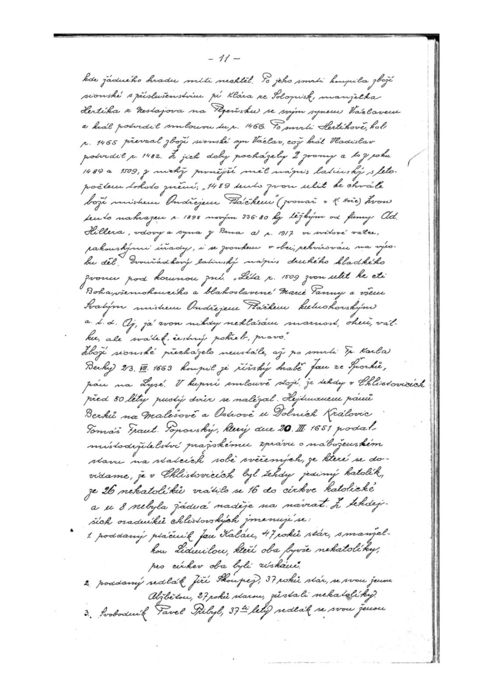 - 11 -
kde žádného hradu míti nechtěl. Po jeho smrti koupila zboží
vonské s příslušenstvím pí Klára ze Solopisk, manželka
Hertvíka z Nestajova na Plzeňsku se svým synem Václavem
a král potvrdil smlouvu tu r. 1466. Po smrti Hertvíkově, kol
r. 1465 převzal zboží vonské syn Václav, což král Vladislav
potvrdil r. 1482. Z jeh doby pocházely 2 zvony a to z roku
1489 a 1509, z nichž prvnější měl nápis latinský s leto-
počtem tohoto znění: "1489 tento zvon ulit ke chvále
boží mistrem Ondřejem Ptáčkem" (zvonař z K. Hory) Zvon
tento nahrazen r. 1898 novým 336.80 kg těžkým od firmy Ad.
Hillera, vdovy a syna z Brna a r. 1917 ve světové válce,
rakouskými úřady, i se zvonkem v obci rekvirován na výro-
bu děl. Dvouřádkový latinský nápis druhého hladkého
zvonu pod korunou zní: "Léta r. 1509 zvon ulit ke cti
Bohavšemohoucího a blahoslavené Marie Panny a všem
Svatým mistrem Ondřejem Ptáčkem kutnohorským
a t. d. Aj, já zvon nikdy nehlásám marnost, oheň, vál-
ku, ale svátek, čestný pohřeb, právo."
Zboží vonské přecházelo neustále, až po smrti Fr. Karla
Berky 23. VII. 1663 koupil je říšský hrabě Jan ze Šporků,
pán na Lysé. V kupní smlouvě stojí, že tehdy v Chlístovicích
před 80 léty pustý dvůr se nalézal. Hejtmanem pánů
Berků na Malešově a Ostrově u Dolních Královic
Tomáš Frant. Popovský, který dne 20. III. 1651 podal
místodržitelství pražskému zprávu o náboženském
stavu na statcích sobě svěřených, ze které se do-
vídáme, že v Chlístovicích byl tehdy jediný katolík,
že 26 nekatolíků vrátilo se 16 do církve katolické
a u 8 nebyla žádná naděje na návrat. Z tehdej-
ších osadníků chlístovských jmenují se:
1. poddaný ptáčník Jan Kalán, 47 roků stár, s manžel-
kou Lidmilou, kteří oba byvše nekatolíky,
pro církev oba byli získáni.
2. poddaný sedlák Jiří Skoupej, 37 roků stár, se svou ženou
Alžbětou, 27 roků starou, zůstali nekatolíky.
3. Svobodník Pavel Přibyl, 37 letý sedlák se svou ženou